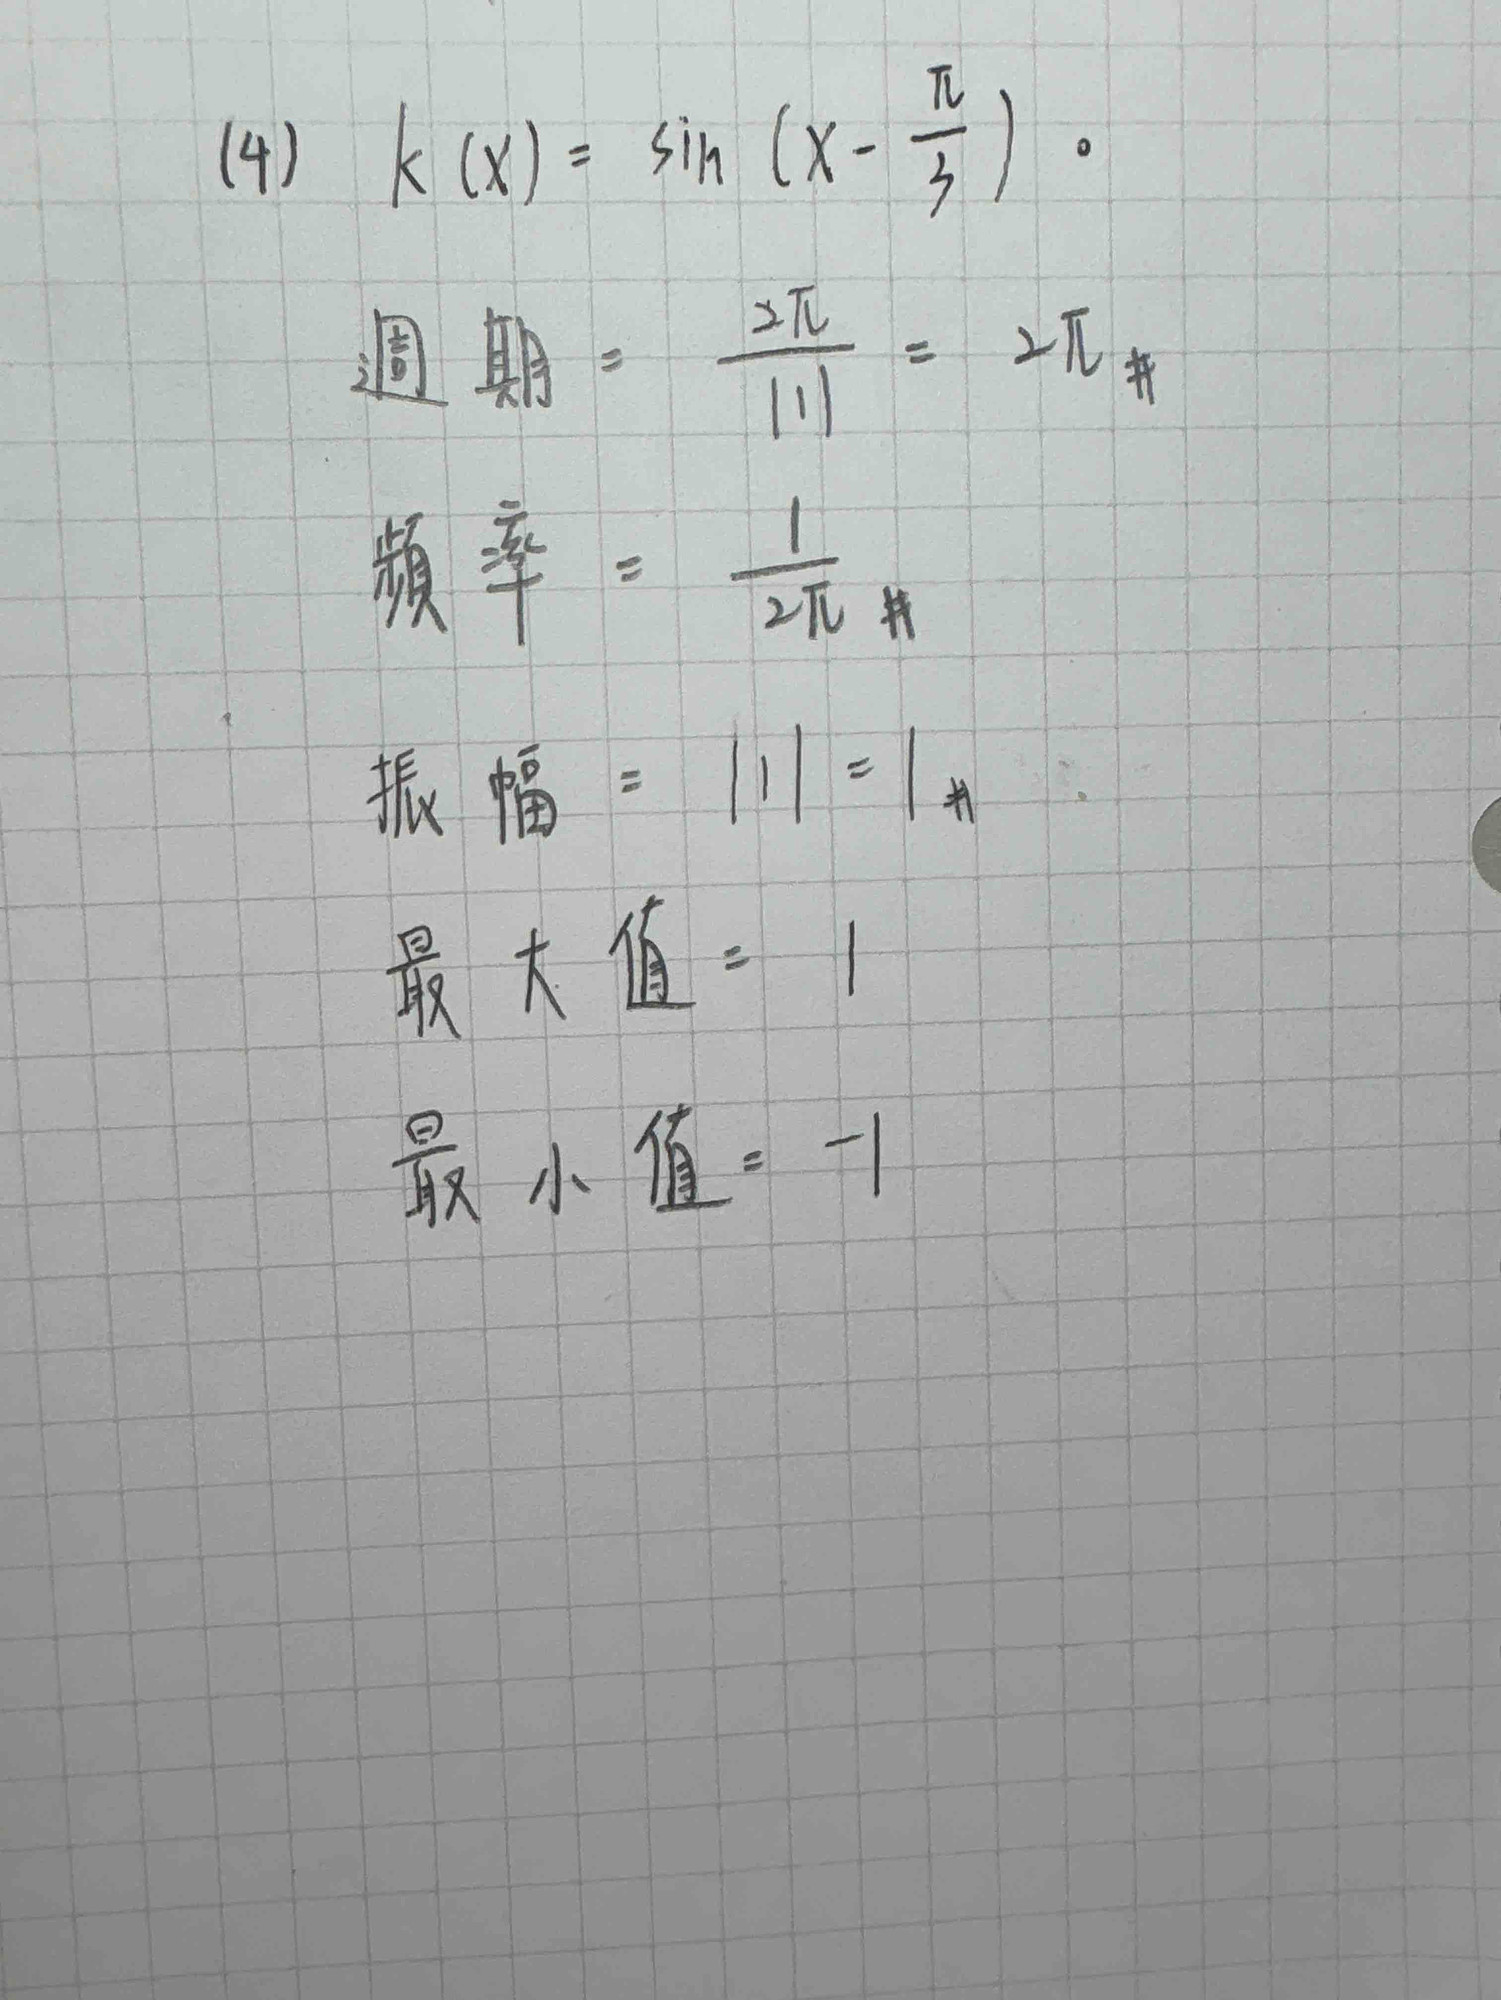 (4) k(x) = sin(x - π/3)。
週期 = 2π/|1| = 2π #
頻率 = 1/2π #
振幅 = |1| = 1 #
最大值 = 1
最小值 = -1